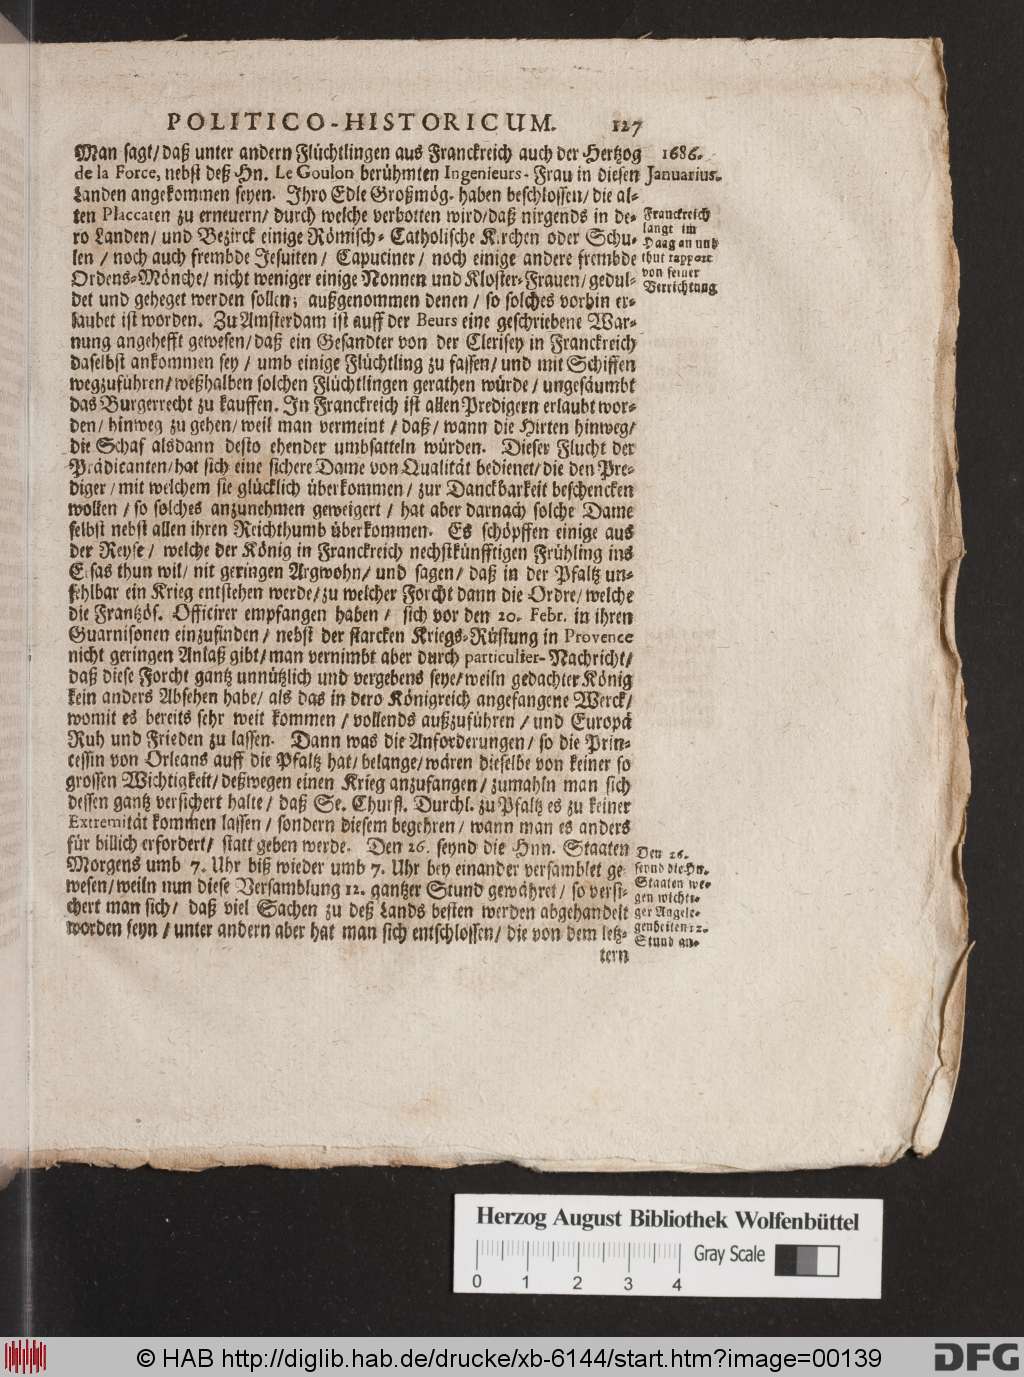 POLITICO-HISTORICUM. 127
Man sagt/ daß unter andern Flüchtlingen aus Franckreich auch der Hertzog
de la Force, nebst deß Hn. Le Goulon berühmten Ingenieurs-Frau in diesen
Landen angekommen seyen. Ihro Edle Großmög. haben beschlossen/ die al-
ten Placcaten zu erneuern/ durch welche verbotten wird/ daß nirgends in de-
ro Landen/ und Bezirck einige Römisch-Catholische Kirchen oder Schu-
len / noch auch frembde Jesuiten / Capuciner / noch einige andere frembde
Ordens-Mönche/ nicht weniger einige Nonnen und Kloster-Frauen/ gedul-
det und geheget werden sollen; außgenommen denen / so solches vorhin er-
laubet ist worden. Zu Amsterdam ist auff der Beurs eine geschriebene War-
nung angehefft gewesen/ daß ein Gesandter von der Clerisey in Franckreich
daselbst ankommen sey / umb einige Flüchtling zu fassen/ und mit Schiffen
wegzuführen/ weßhalben solchen Flüchtlingen gerathen würde / ungesäumbt
das Burgerrecht zu kauffen. In Franckreich ist allen Predigern erlaubt wor-
den/ hinweg zu gehen/ weil man vermeint / daß/ wann die Hirten hinweg/
die Schaf alsdann desto ehender umbsatteln würden. Dieser Flucht der
Prädicanten/ hat sich eine sichere Dame von Qualität bedienet/ die den Pre-
diger/ mit welchem sie glücklich überkommen/ zur Danckbarkeit beschencken
wollen / so solches anzunehmen geweigert / hat aber darnach solche Dame
selbst nebst allen ihren Reichthumb überkommen. Es schöpffen einige aus
der Reyse / welche der König in Franckreich nechstkünfftigen Frühling ins
Elsas thun wil/ nit geringen Argwohn/ und sagen/ daß in der Pfaltz un-
fehlbar ein Krieg entstehen werde/ zu welcher Forcht dann die Ordre/ welche
die Frantzös. Officirer empfangen haben / sich vor den 20. Febr. in ihren
Guarnisonen einzufinden/ nebst der starcken Kriegs-Rüstung in Provence
nicht geringen Anlaß gibt/ man vernimbt aber durch particulier-Nachricht/
daß diese Forcht gantz unnützlich und vergebens seye/ weiln gedachter König
kein anders Absehen habe/ als das in dero Königreich angefangene Werck/
womit es bereits sehr weit kommen / vollends außzuführen / und Europä
Ruh und Frieden zu lassen. Dann was die Anforderungen/ so die Prin-
cessin von Orleans auff die Pfaltz hat/ belange/ wären dieselbe von keiner so
grossen Wichtigkeit/ deßwegen einen Krieg anzufangen/ zumahln man sich
dessen gantz versichert halte/ daß Se. Churfl. Durchl. zu Pfaltz es zu keiner
Extremität kommen lassen / sondern diesem begehren/ wann man es anders
für billich erfordert/ statt geben werde. Den 26. seynd die Hnn. Staaten
Morgens umb 7. Uhr biß wieder umb 7. Uhr bey einander versamblet ge-
wesen/ weiln nun diese Versamblung 12. gantzer Stund gewähret/ so versi-
chert man sich/ daß viel Sachen zu deß Lands besten werden abgehandelt
worden seyn / unter andern aber hat man sich entschlossen/ die von dem letz-
tern
1686.
Januarius.
Franckreich
langt im
Haag an und
thut rapport
von seiner
Verrichtung
Den 26.
seynd die Hn.
Staaten we-
gen wichti-
ger Angele-
genheiten 12.
Stund an-
Herzog August Bibliothek Wolfenbüttel
0 1 2 3 4
Gray Scale
© HAB http://diglib.hab.de/drucke/xb-6144/start.htm?image=00139
DFG